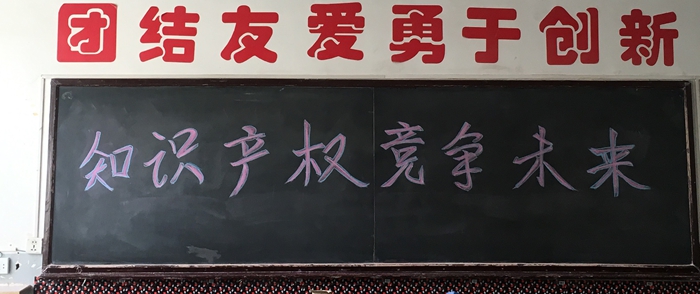 团结友爱勇于创新
知识产权竞争未来